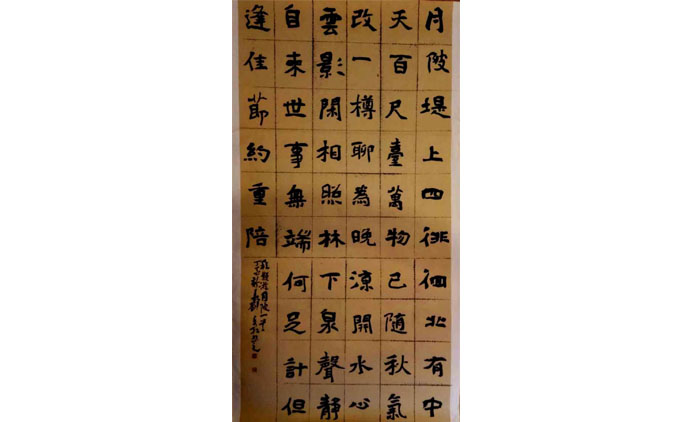 月陂堤上四徘徊北有中
天百尺臺萬物已隨秋氣
改一樽聊為晚涼開水心
雲影閑相照林下泉聲靜
自来世事無端何足計但
逢佳節約重陪